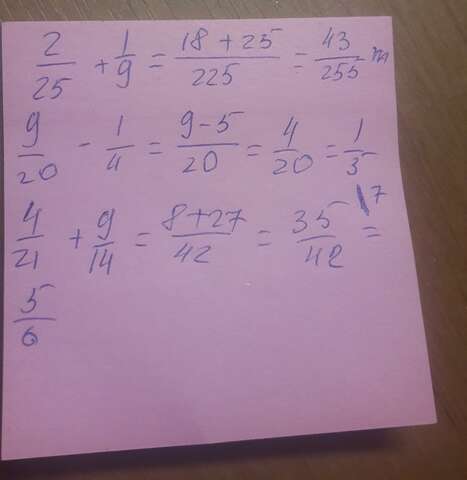 2/25 + 1/9 = 18+25/225 = 43/255 m
9/20 - 1/4 = 9-5/20 = 4/20 = 1/5
4/21 + 9/14 = 8+27/42 = 35/42 |7 =
5/6